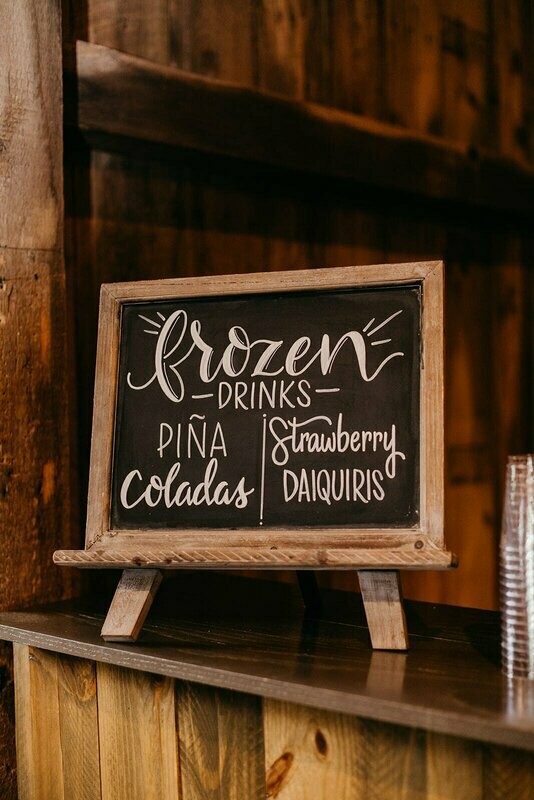 frozen
-DRINKS-
PIÑA
Coladas
Strawberry
DAIQUIRIS